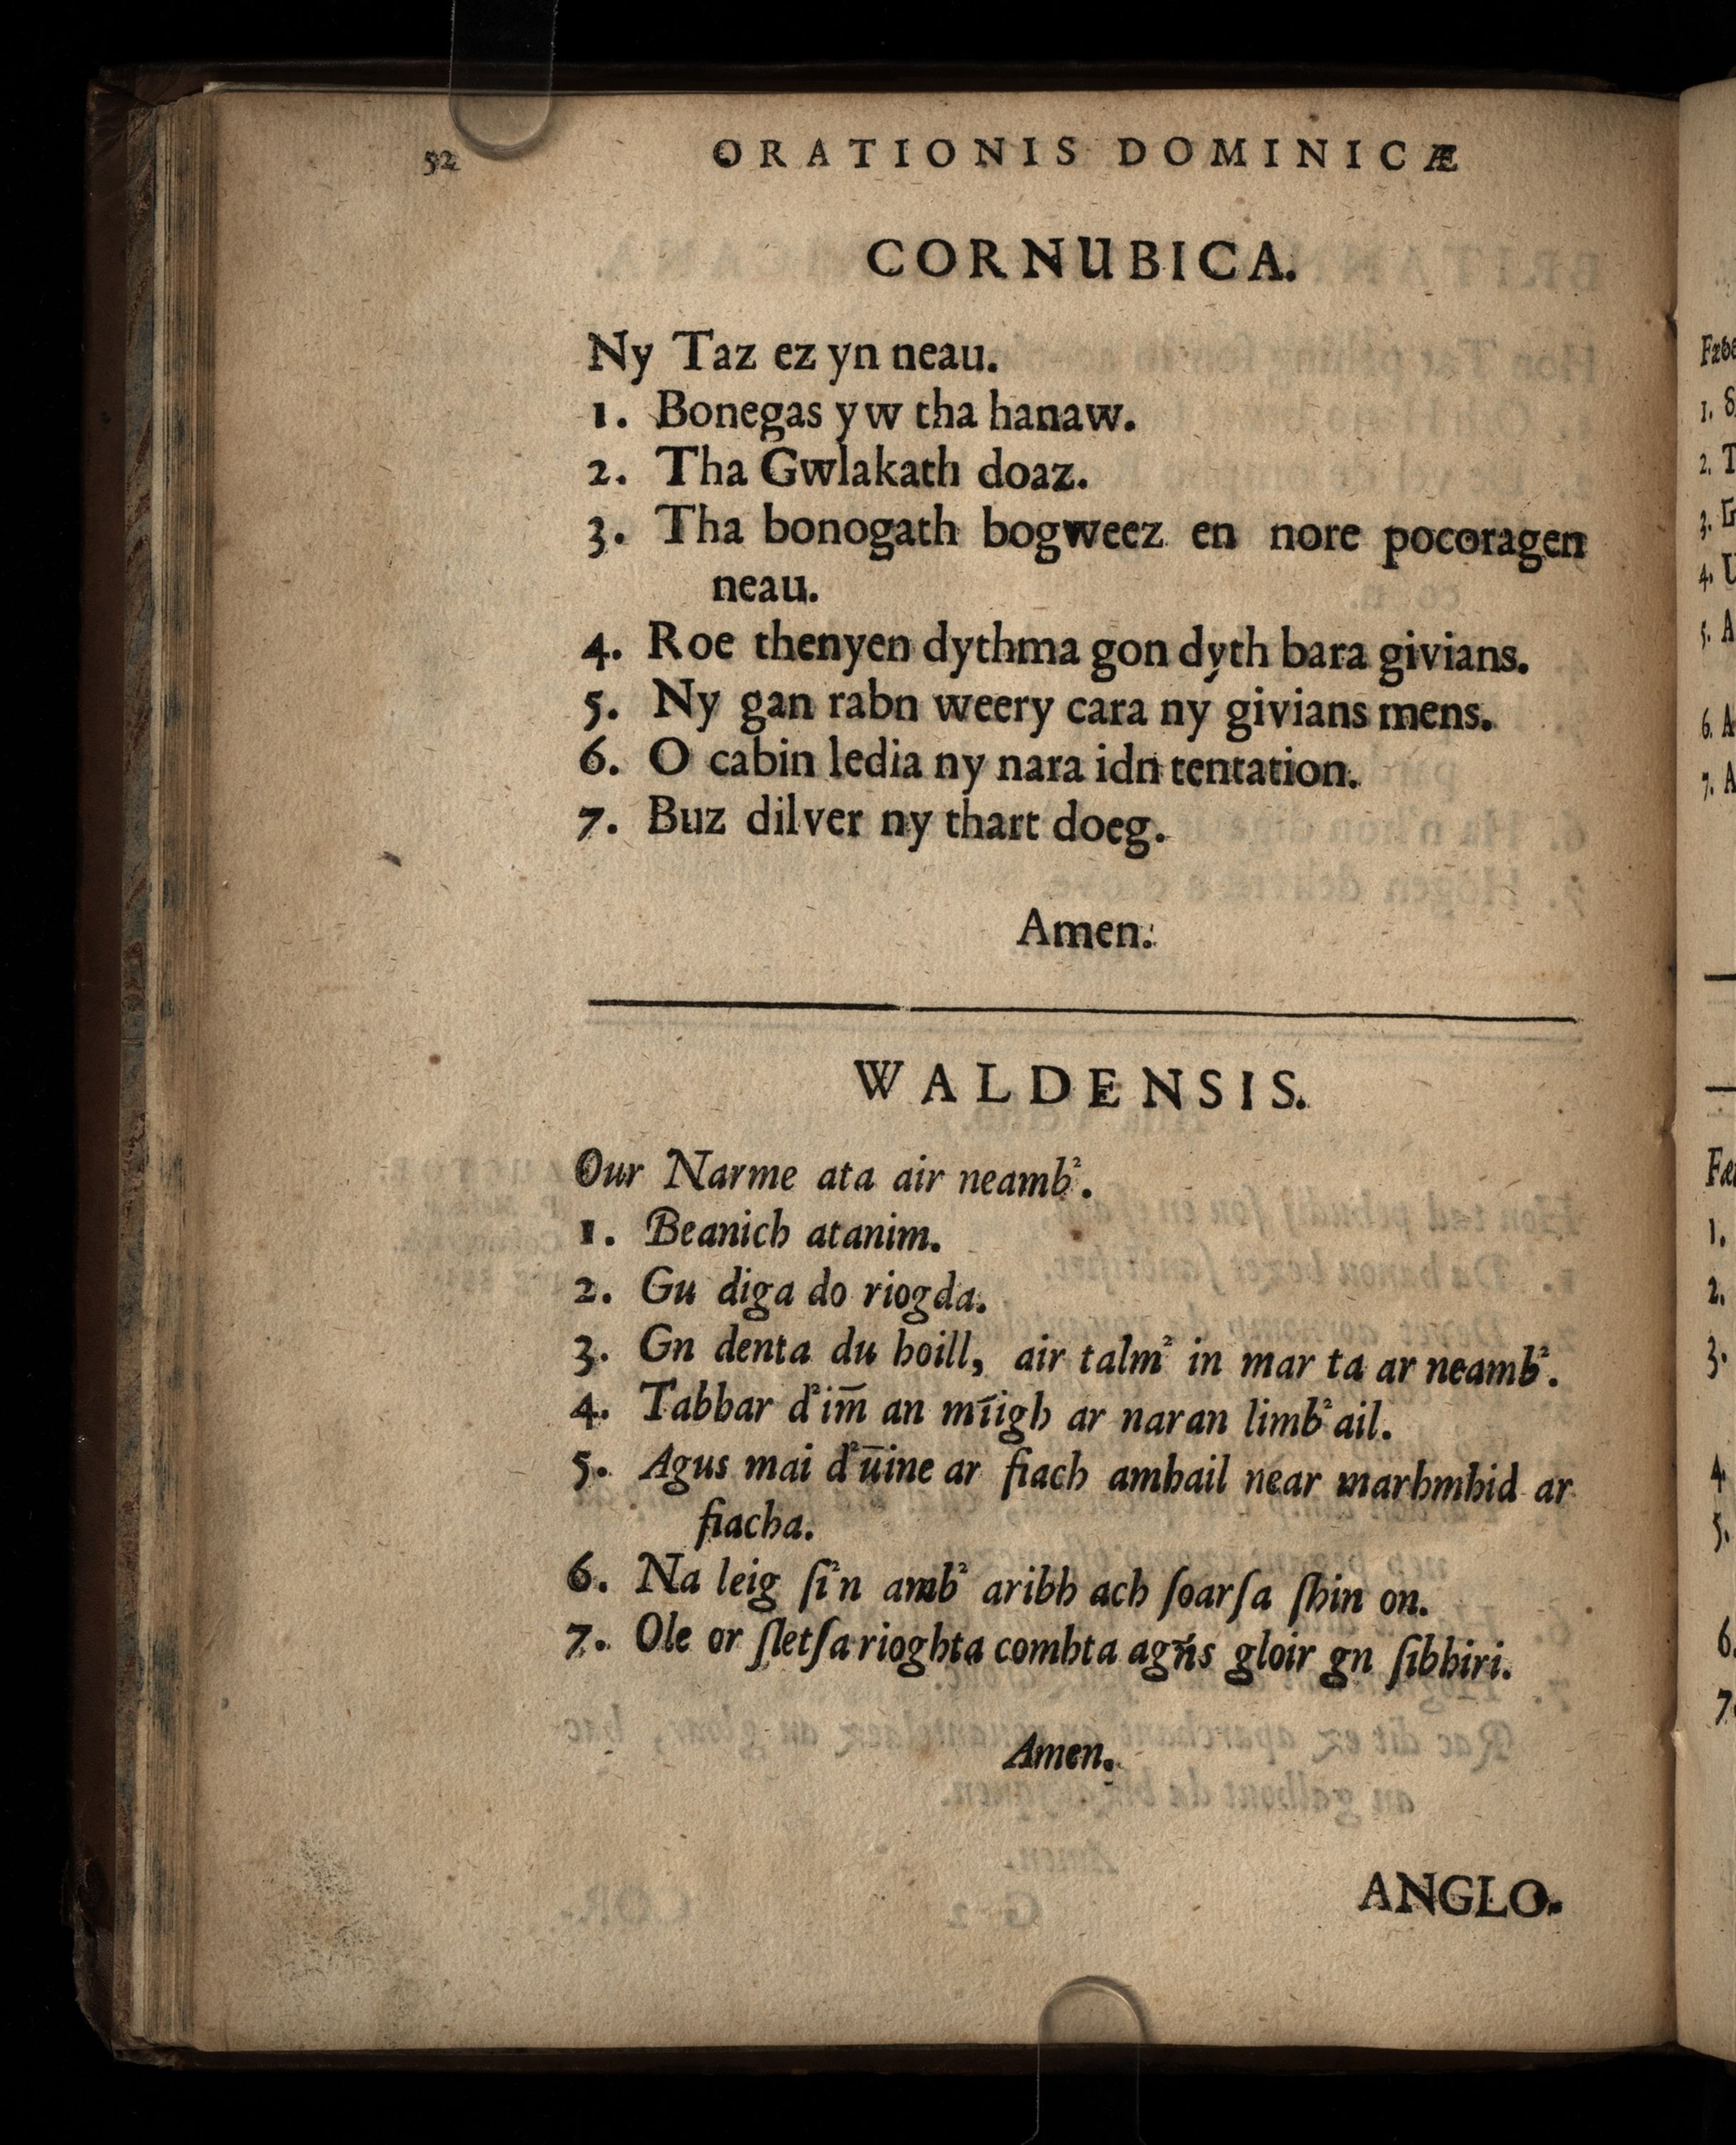 52 ORATIONIS DOMINICÆ
CORNUBICA.
Ny Taz ez yn neau.
1. Bonegas yw tha hanaw.
2. Tha Gwlakath doaz.
3. Tha bonogath bogweez en nore pocoragen
neau.
4. Roe thenyen dythma gon dyth bara givians.
5. Ny gan rabn weery cara ny givians mens.
6. O cabin ledia ny nara idn tentation.
7. Buz dilver ny thart doeg.
Amen.
WALDENSIS.
Our Narme ata air neamb².
1. Beanich atanim.
2. Gu diga do riogda.
3. Gn denta du hoill, air talm² in mar ta ar neamb².
4. Tabbar d²im̄ an mīigh ar naran limb²ail.
5. Agus mai d²ūine ar fiach amhail near marhmhid ar
fiacha.
6. Na leig ſi²n amb² aribh ach ſoarſa ſhin on.
7. Ole or ſletſa rioghta combta agn̄s gloir gn ſibhiri.
Amen.
ANGLO.